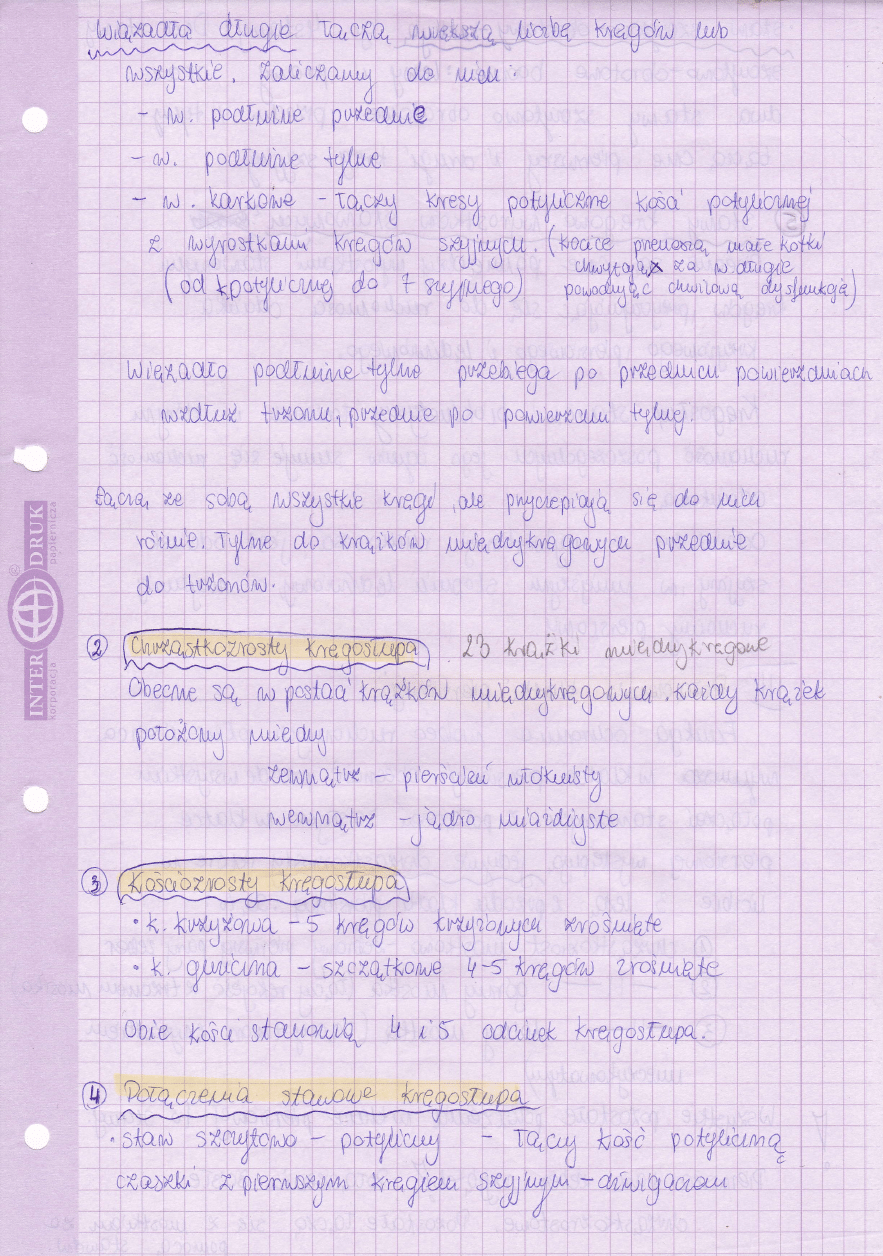 Wiązadła długie łączą większą liczbę kręgów lub
wszystkie. Zaliczamy do nich:
- w. podłużne przednie
- w. podłużne tylne
- w. karkowe - łączy kresy potyliczne kości potylicznej
z wyrostkami kręgów szyjnych. (kocice przenoszą małe kotki
chwytając za w długie
(od k potylicznej do 7 szyjnego) powodując chwilową dysfunkcję)
Więzadło podłużne tylne przebiega po przednich powierzchniach
wzdłuż trzonu, przednie po powierzchni tylnej.
Łączą ze sobą wszystkie kręgi, ale przyczepiają się do nich
różnie. Tylne do krążków międzykręgowych przednie
do trzonów.
② Chrząstkozrosty kręgosłupa 23 krążki międzykręgowe
Obecne są w postaci krążków międzykręgowych. Każdy krążek
położony między
zewnątrz - pierścień włóknisty
wewnątrz - jądro miażdżyste
③ Kościozrosty kręgosłupa
• k. krzyżowa - 5 kręgów krzyżowych zrośnięte
• k. guziczna - szczątkowe 4-5 kręgów zrośnięte
Obie kości stanowią 4 i 5 odcinek kręgosłupa.
④ Połączenia stawowe kręgosłupa
• staw szczytowo - potyliczny - łączy kość potyliczną
czaszki z pierwszym kręgiem szyjnym - dźwigaczem
INTER DRUK
korporacja papiernicza